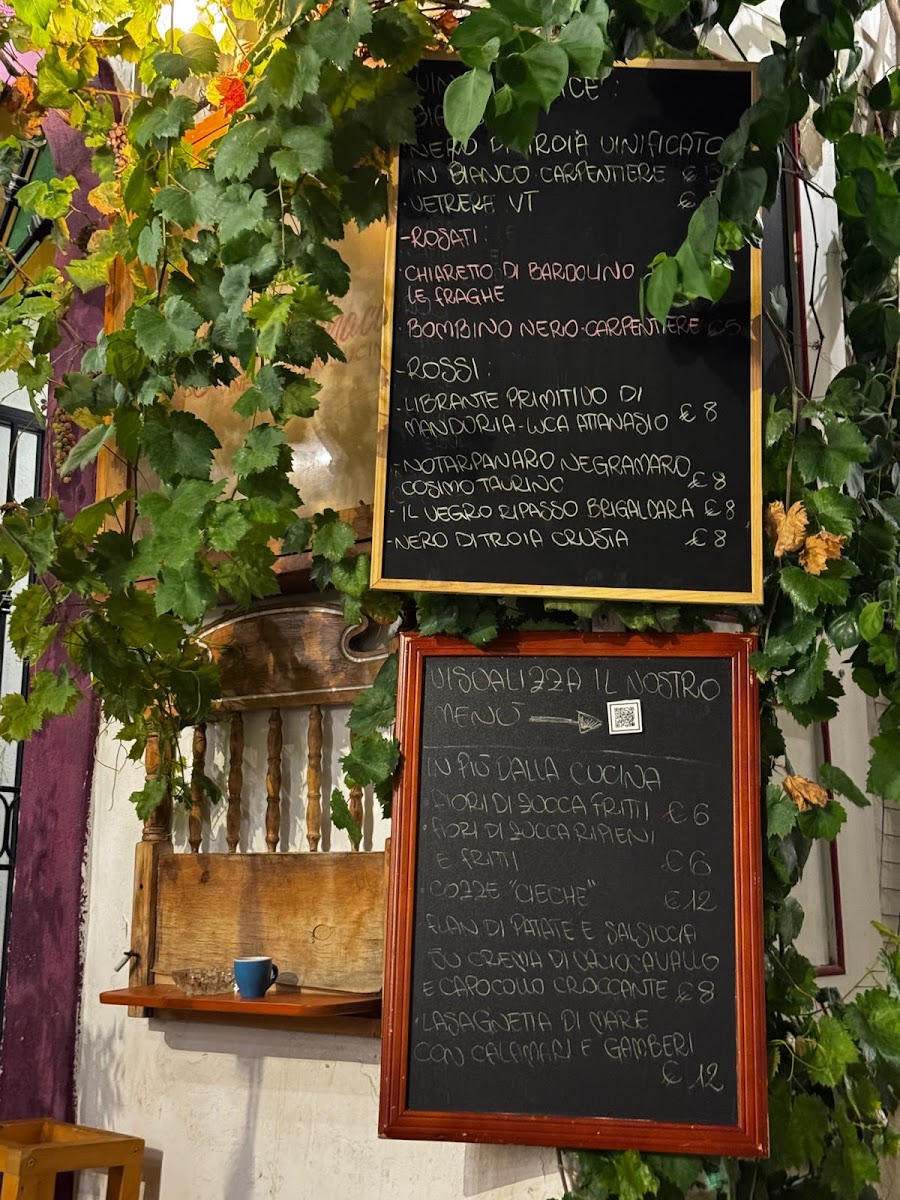 NERO DI TROIA VINIFICATO
IN BIANCO CARPENTIERE €
VETRERE VT €
-ROSATI:
CHIARETTO DI BARDOLINO
LE FRAGHE
· BOMBINO NERO-CARPENTIERE €5
-ROSSI:
- LIBRANTE PRIMITIVO DI
MANDURIA-LUCA ATTANASIO € 8
- NOTARPANARO NEGRAMARO
COSIMO TAURINO € 8
- IL VEGRO RIPASSO BRIGALDARA € 8
- NERO DI TROIA CRUSTA € 8
VISUALIZZA IL NOSTRO
MENÙ
IN PIÙ DALLA CUCINA
· FIORI DI ZUCCA FRITTI € 6
· FIORI DI ZUCCA RIPIENI
E FRITTI € 6
· COZZE "CIECHE" € 12
FLAN DI PATATE E SALSICCIA
SU CREMA DI CACIOCAVALLO
E CAPOCOLLO CROCCANTE € 8
· LASAGNETTA DI MARE
CON CALAMARI E GAMBERI
€ 12